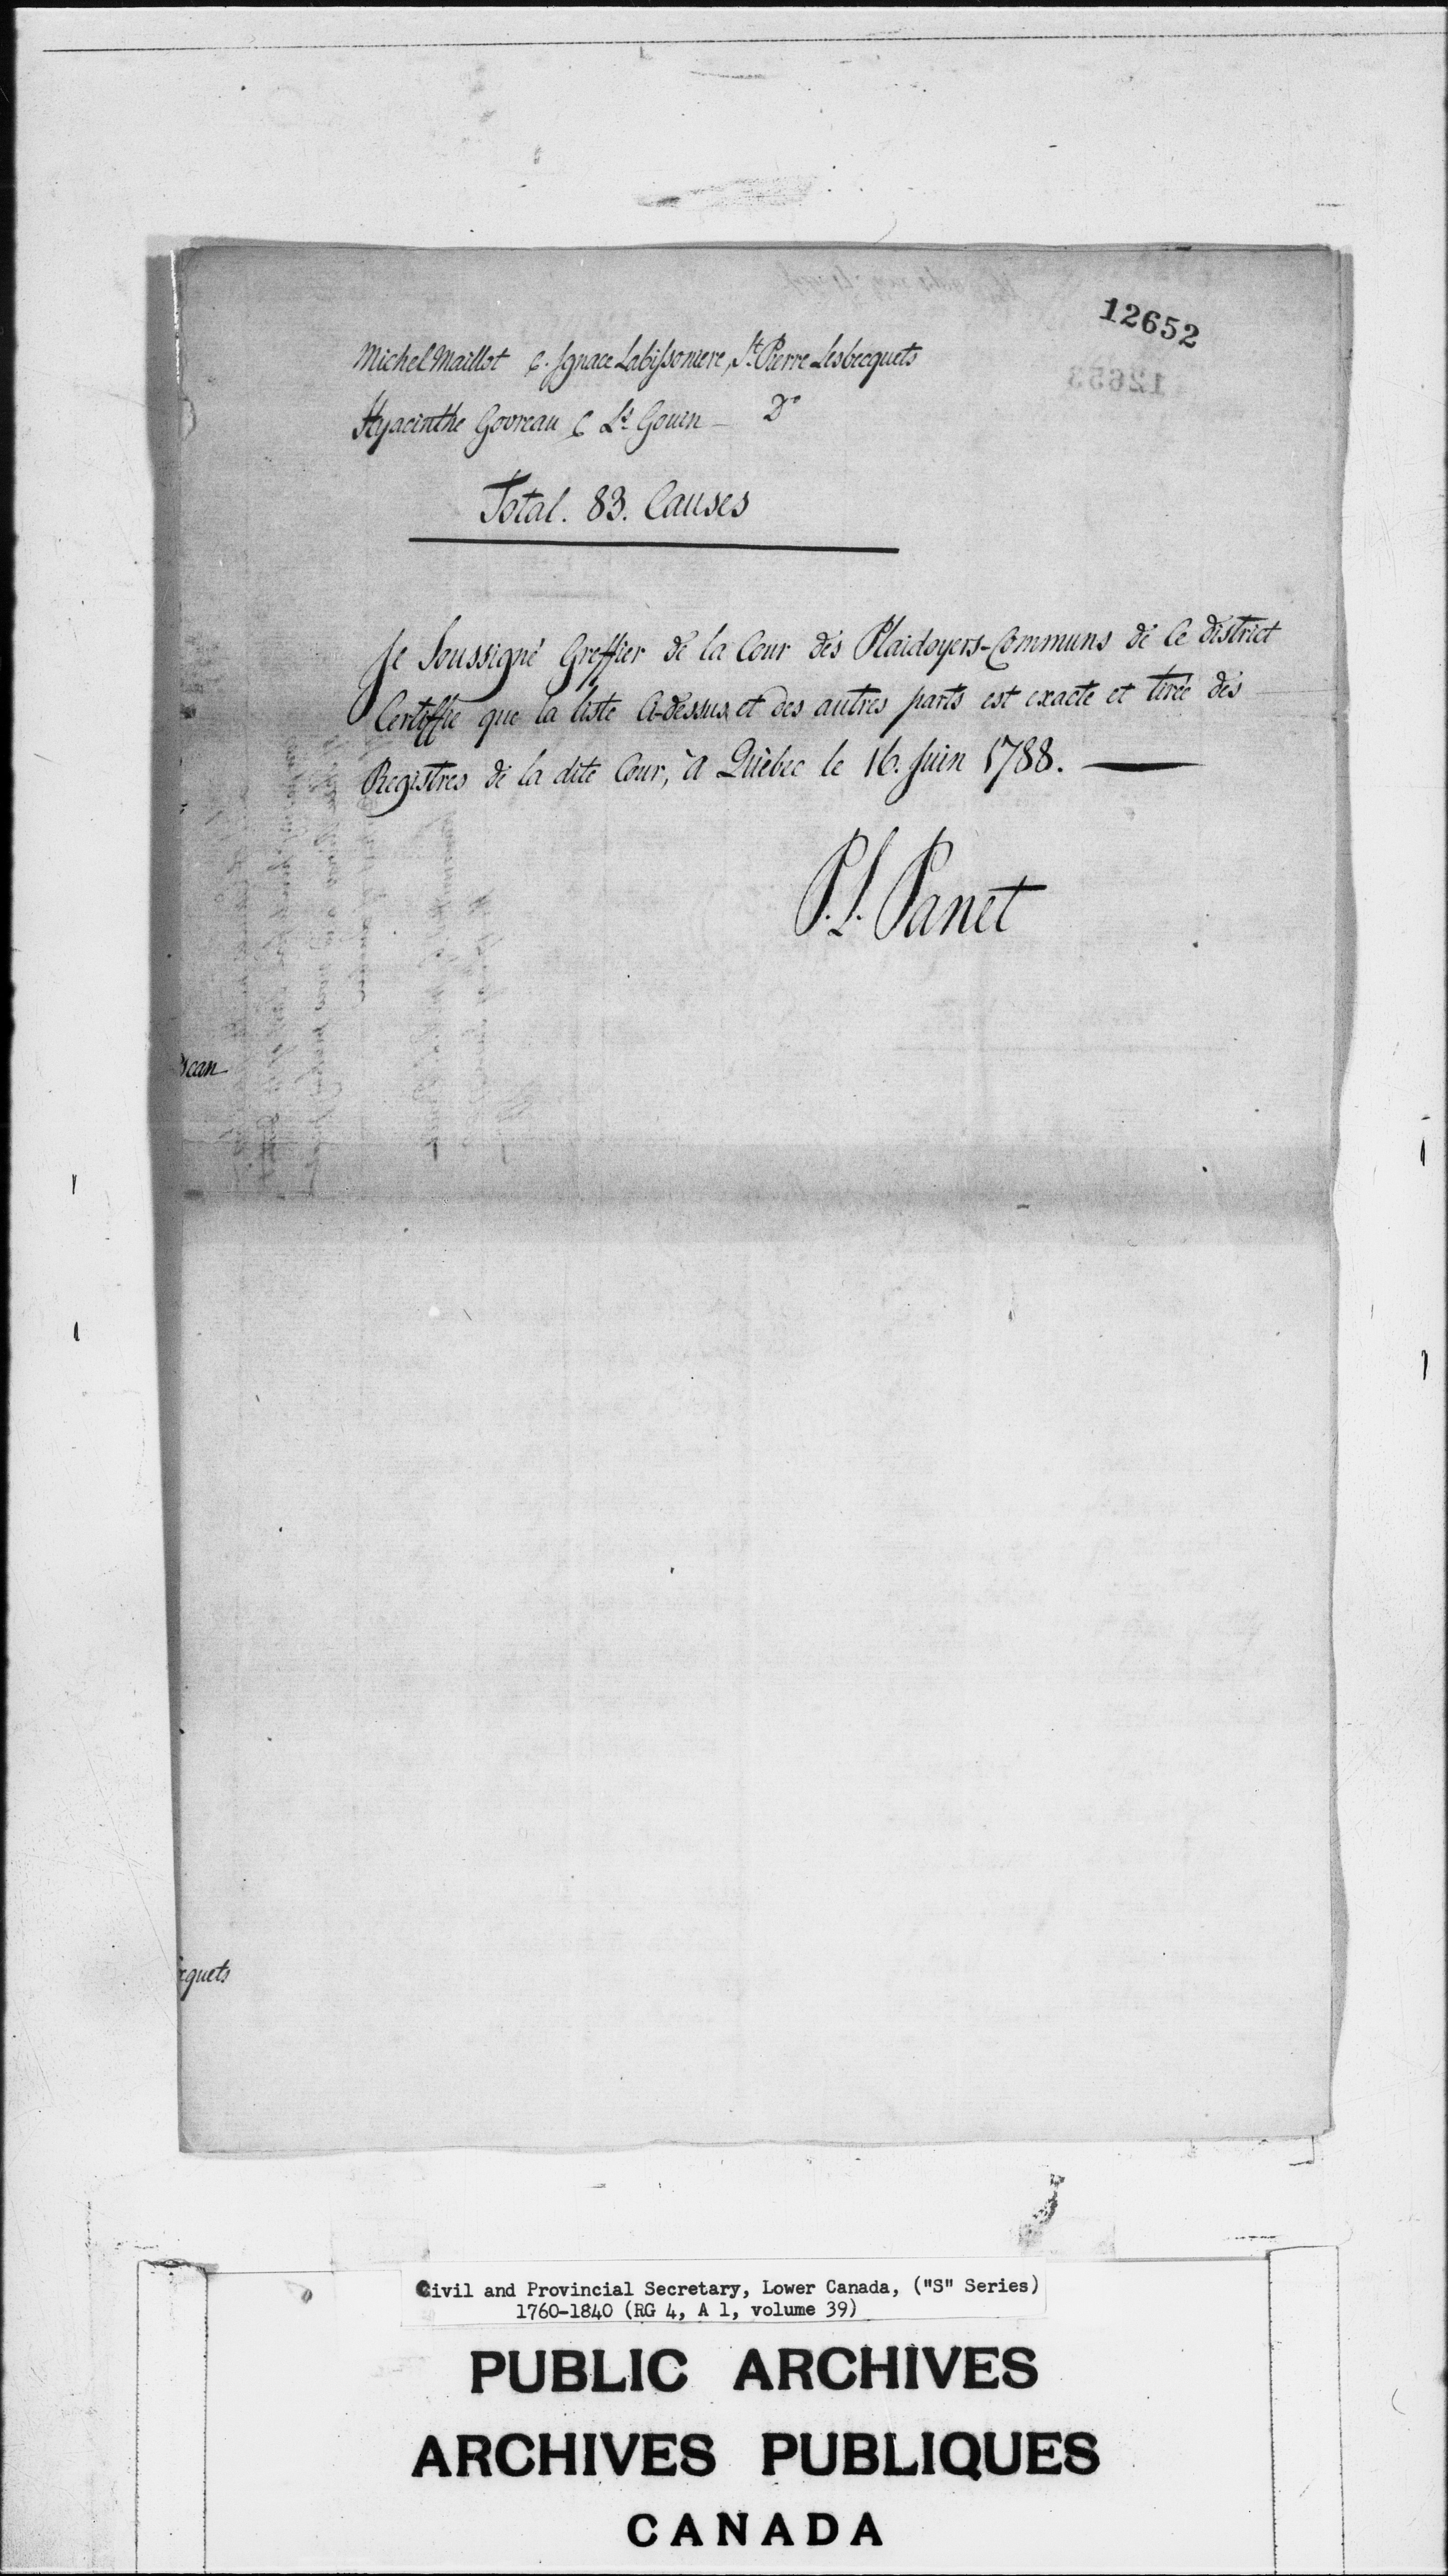 12652
Michel Maillot C. Ignace Labissoniere, St. Pierre Lesbecquets
Hyacinthe Govreau C Ls. Gouin - Do
Total. 83. Causes
Je Soussigné Greffier de la Cour des Plaidoyers-Communs de Ce district
Certiffie que la liste Ci-dessus et des autres parts est exacte et tirée des
Registres de la dite Cour, à Québec le 16. Juin 1788.
P. L. Panet
can
cquets
Civil and Provincial Secretary, Lower Canada, ("S" Series)
1760-1840 (RG 4, A 1, volume 39)
PUBLIC ARCHIVES
ARCHIVES PUBLIQUES
CANADA